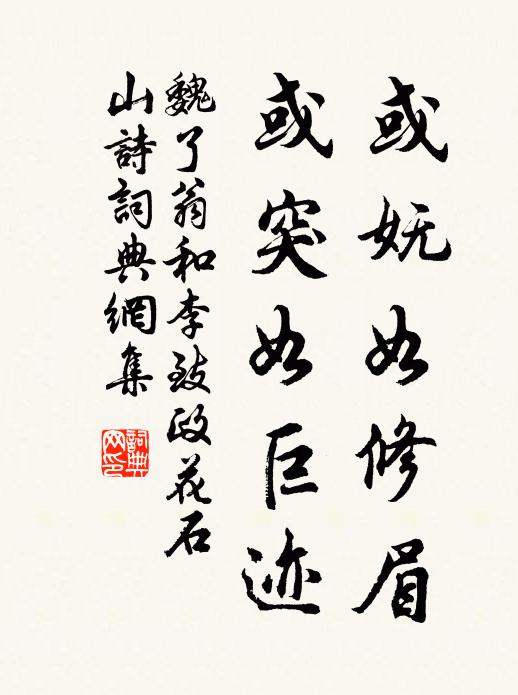 或妩如修眉
或突如巨迹
魏了翁和李致政花石
山詩詞典網集
詞典
网印